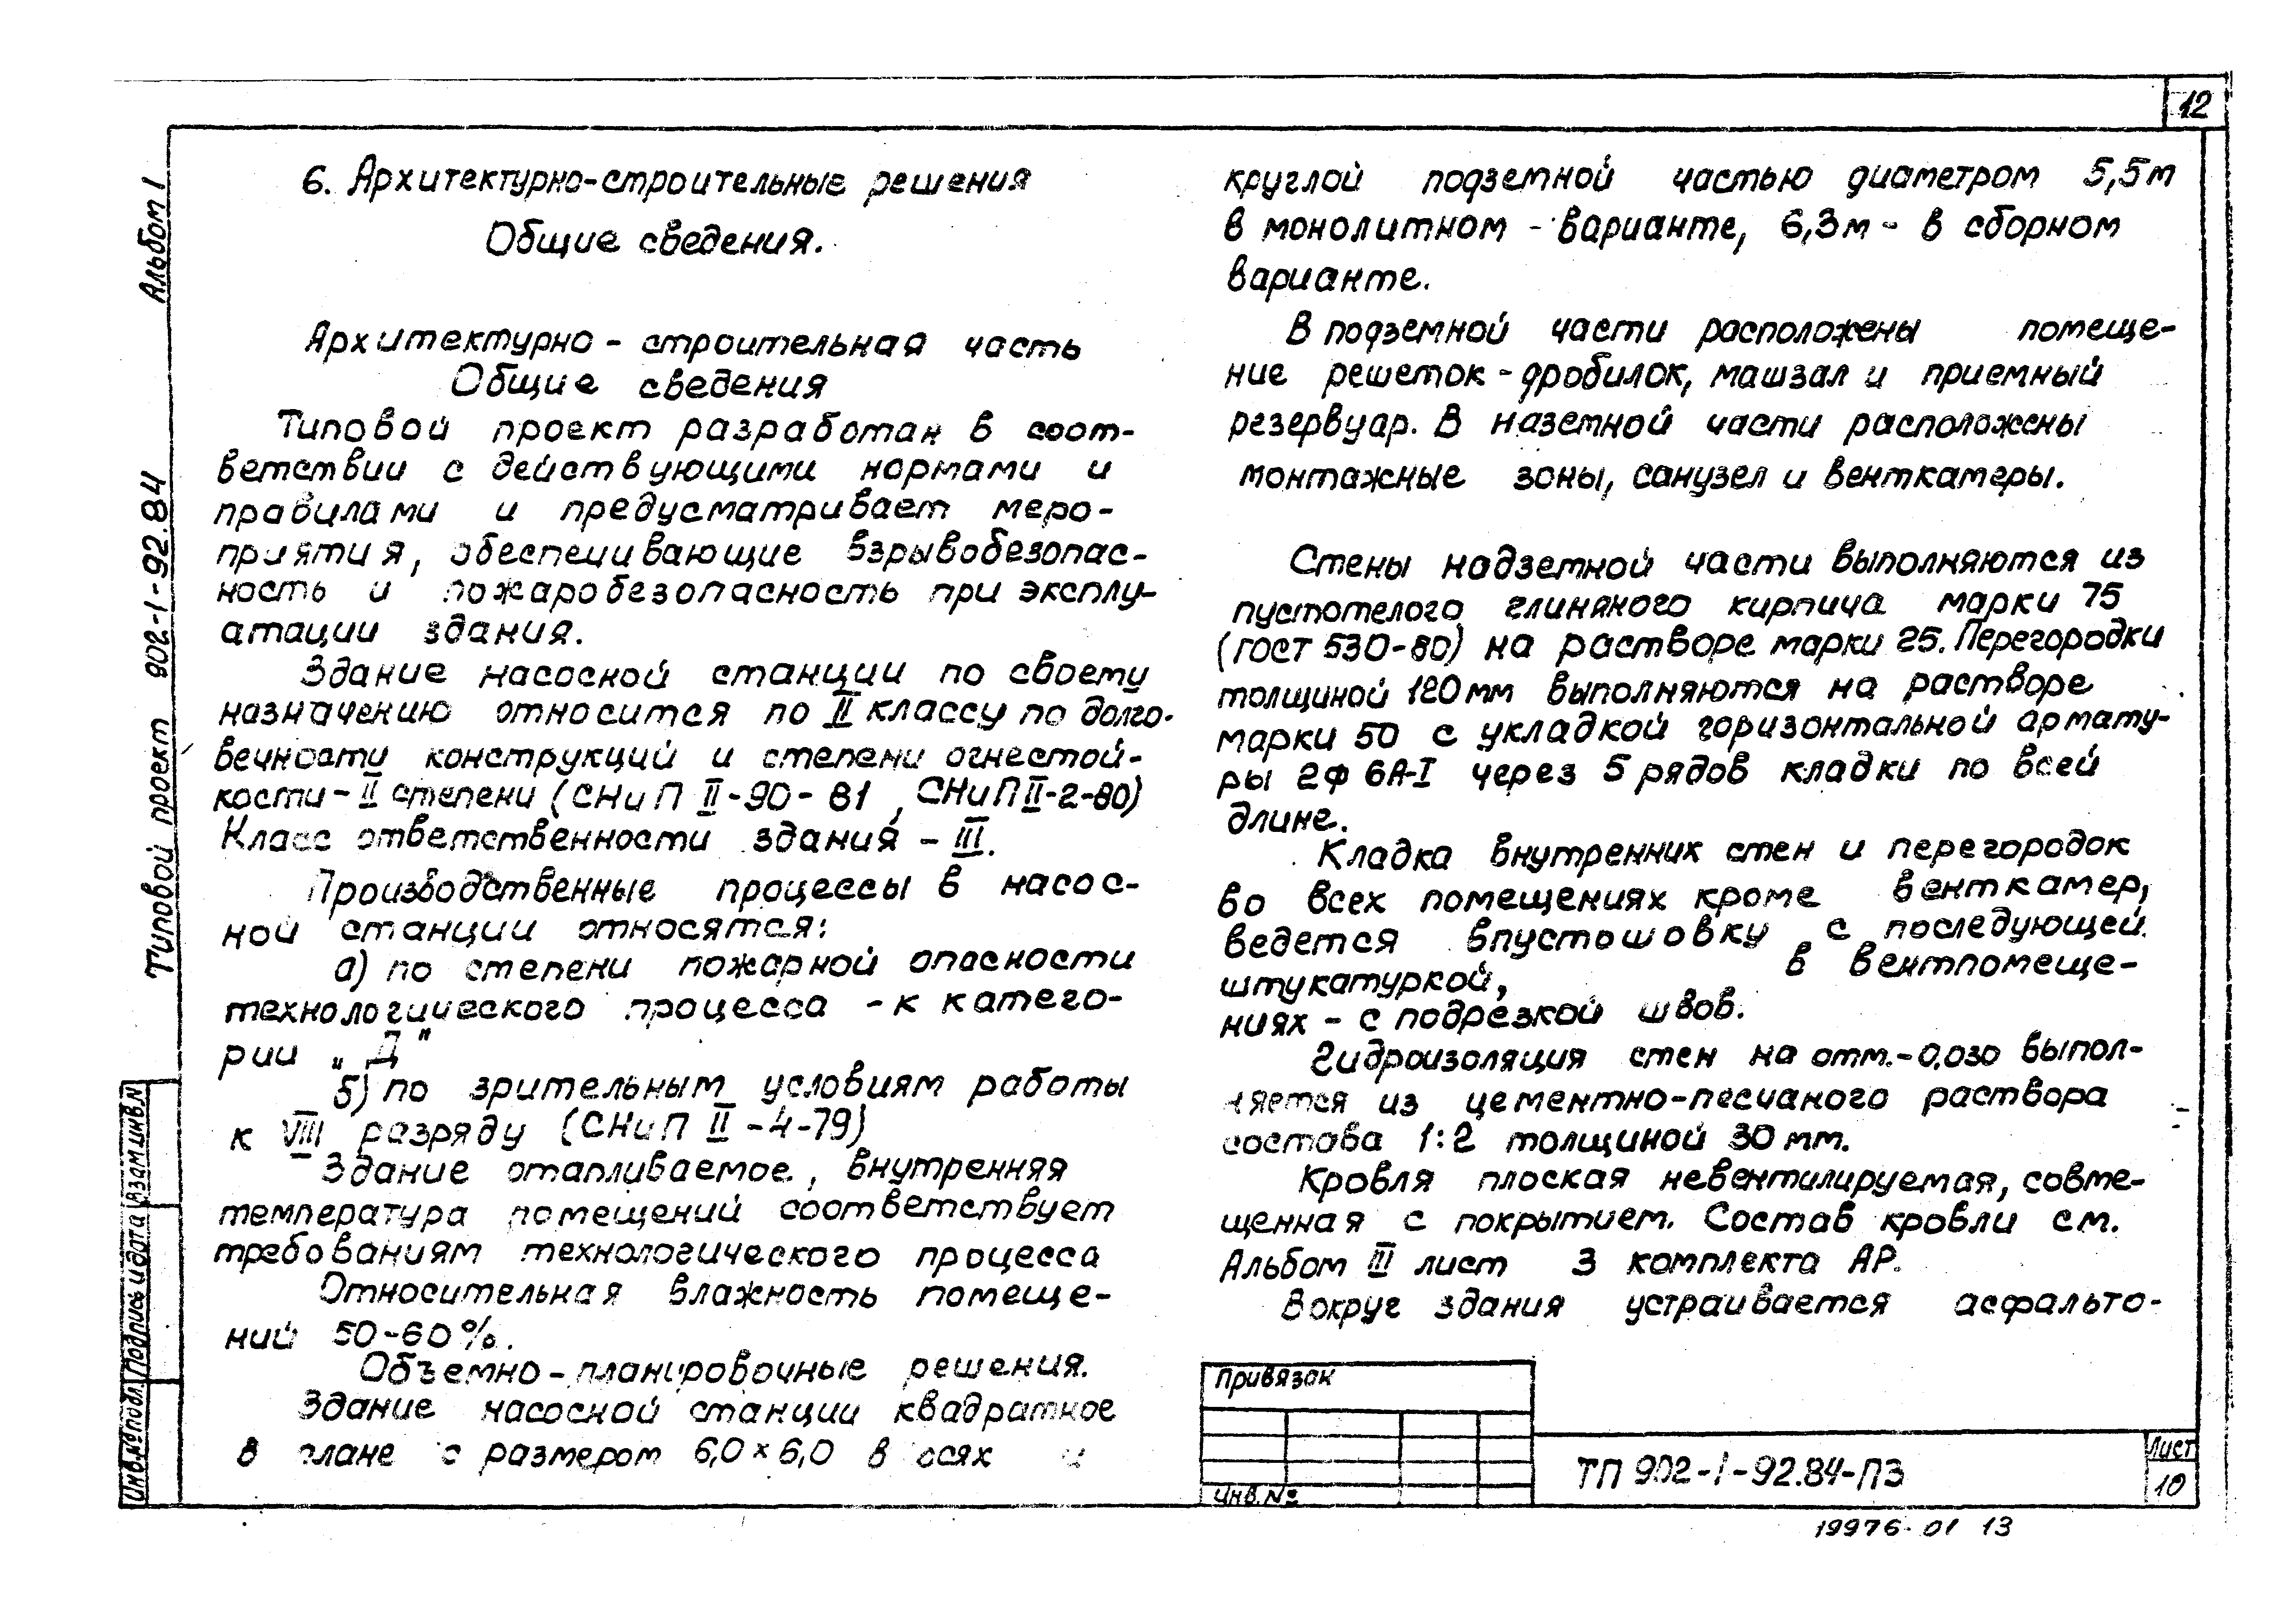 12
Альбом I
Типовой проект 902-1-92.84
6. Архитектурно-строительные решения
Общие сведения.
Архитектурно-строительная часть
Общие сведения
Типовой проект разработан в соот-
ветствии с действующими нормами и
правилами и предусматривает меро-
приятия, обеспечивающие взрывобезопас-
ность и пожаробезопасность при эксплу-
атации здания.
Здание насосной станции по своему
назначению относится по II классу по долго-
вечности конструкций и степени огнестой-
кости - II степени (СНиП II-90-81, СНиП II-2-80)
Класс ответственности здания - III.
Производственные процессы в насос-
ной станции относятся:
а) по степени пожарной опасности
технологического процесса - к катего-
рии „Д"
б) по зрительным условиям работы
к VIII разряду (СНиП II-4-79)
Здание отапливаемое, внутренняя
температура помещений соответствует
требованиям технологического процесса
Относительная влажность помеще-
ний 50-60%.
Объемно-планировочные решения.
Здание насосной станции квадратное
в плане с размером 6,0×6,0 в осях и
круглой подземной частью диаметром 5,5м
в монолитном - варианте, 6,3м - в сборном
варианте.
В подземной части расположены помеще-
ние решеток-дробилок, машзал и приемный
резервуар. В наземной части расположены
монтажные зоны, санузел и венткамеры.
Стены надземной части выполняются из
пустотелого глиняного кирпича марки 75
(ГОСТ 530-80) на растворе марки 25. Перегородки
толщиной 120мм выполняются на растворе
марки 50 с укладкой горизонтальной армату-
ры 2ф 6А-I через 5 рядов кладки по всей
длине.
Кладка внутренних стен и перегородок
во всех помещениях кроме венткамер,
ведется впустошовку с последующей
штукатуркой, в вентпомеще-
ниях - с подрезкой швов.
Гидроизоляция стен на отм.-0,030 выпол-
няется из цементно-песчаного раствора
состава 1:2 толщиной 30 мм.
Кровля плоская невентилируемая, совме-
щенная с покрытием. Состав кровли см.
Альбом III лист 3 комплекта АР.
Вокруг здания устраивается асфальто-
Привязан
Инв.№
ТП 902-1-92.84-ПЗ
Лист
10
Инв.№подл. Подпись и дата Взам.инв.N
19976-01 13